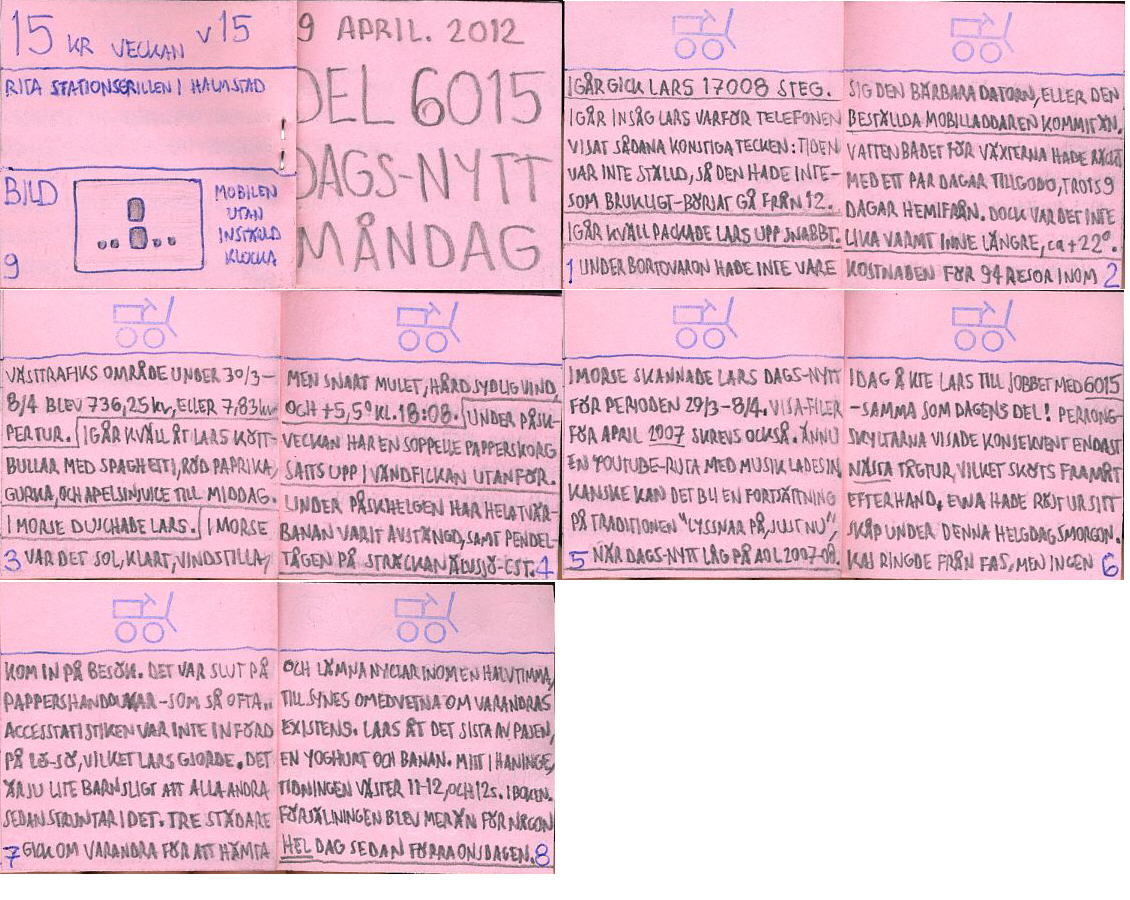 15 KR VECKAN V15
RITA STATIONSGRILLEN I HALMSTAD
BILD
9
MOBILEN
UTAN
INSTÄLLD
KLOCKA
9 APRIL. 2012
DEL 6015
DAGS-NYTT
MÅNDAG
IGÅR GICK LARS 17008 STEG.
IGÅR INSÅG LARS VARFÖR TELEFONEN
VISAT SÅDANA KONSTIGA TECKEN: TIDEN
VAR INTE STÄLLD, SÅ DEN HADE INTE-
SOM BRUKLIGT-BÖRJAT GÅ FRÅN 12.
IGÅR KVÄLL PACKADE LARS UPP SNABBT.
1 UNDER BORTOVARON HADE INTE VARE
SIG DEN BÄRBARA DATORN, ELLER DEN
BESTÄLLDA MOBILLADDAREN KOMMIT ÄN.
VATTENBADET FÖR VÄXTERNA HADE RÄCKT
MED ETT PAR DAGAR TILLGODO, TROTS 9
DAGAR HEMIFRÅN. DOCK VAR DET INTE
LIKA VARMT INNE LÄNGRE, ca +22°.
KOSTNADEN FÖR 94 RESOR INOM 2
VÄSTTRAFIKS OMRÅDE UNDER 30/3-
8/4 BLEV 736,25 kr, ELLER 7,83 kr
PER TUR. IGÅR KVÄLL ÅT LARS KÖTT-
BULLAR MED SPAGHETTI, RÖD PAPRIKA,
GURKA, OCH APELSINJUICE TILL MIDDAG.
I MORSE DUSCHADE LARS. I MORSE
3 VAR DET SOL, KLART, VINDSTILLA,
MEN SNART MULET, HÅRD SYDLIG VIND,
OCH +5,5° KL. 18:08. UNDER PÅSK-
VECKAN HAR EN SOPPELLE PAPPERSKORG
SATTS UPP I VÄNDFICKAN UTANFÖR.
UNDER PÅSKHELGEN HAR HELA TVÄR-
BANAN VARIT AVSTÄNGD, SAMT PENDEL-
TÅGEN PÅ STRÄCKAN ÄLVSJÖ-CST. 4
I MORSE SKANNADE LARS DAGS-NYTT
FÖR PERIODEN 29/3-8/4. VISA-FILER
FÖR APRIL 2007 SKREVS OCKSÅ. ÄNNU
EN YOUTUBE-RUTA MED MUSIK LADES IN,
KANSKE KAN DET BLI EN FORTSÄTTNING
PÅ TRADITIONEN "LYSSNAR PÅ, JUST NU",
5 NÄR DAGS-NYTT LÅG PÅ AOL 2007-08.
IDAG ÅKTE LARS TILL JOBBET MED 6015
-SAMMA SOM DAGENS DEL! PERRONG-
SKYLTARNA VISADE KONSEKVENT ENDAST
NÄSTA TÅGTUR, VILKET SKÖTS FRAMÅT
EFTERHAND. EWA HADE RÖJT UR SITT
SKÅP UNDER DENNA HELGDAGSMORGON.
KAJ RINGDE FRÅN FAS, MEN INGEN 6
KOM IN PÅ BESÖK. DET VAR SLUT PÅ
PAPPERSHANDDUKAR-SOM SÅ OFTA..
ACCESSTATISTIKEN VAR INTE INFÖRD
PÅ LÖ-SÖ, VILKET LARS GJORDE. DET
ÄR JU LITE BARNSLIGT ATT ALLA ANDRA
SEDAN STRUNTAR I DET. TRE STÄDARE
7 GICK OM VARANDRA FÖR ATT HÄMTA
OCH LÄMNA NYCLAR INOM EN HALVTIMMA,
TILL SYNES OMEDVETNA OM VARANDRAS
EXISTENS. LARS ÅT DET SISTA AV PAJEN,
EN YOGHURT OCH BANAN. MITT I HANINGE,
TIDNINGEN VÄSTER 11-12, OCH 12s. I BOKEN.
FÖRSÄLJNINGEN BLEV MER ÄN FÖR NÅGON
HEL DAG SEDAN FÖRRA ONSDAGEN. 8